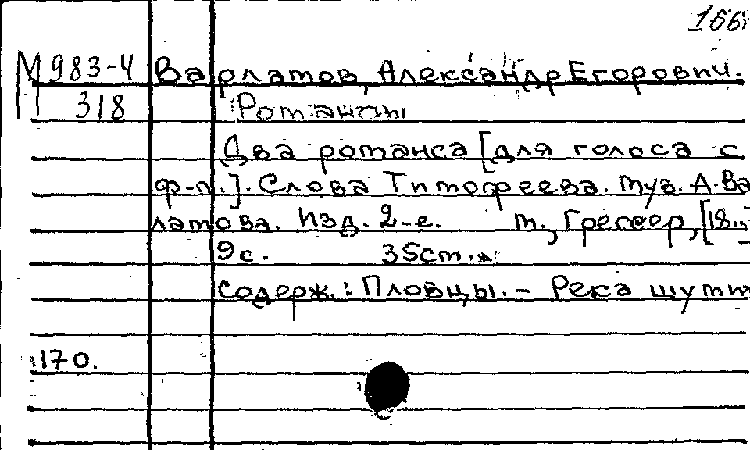 166
М 983-4 Варламов, Александр Егорович.
318 Романсы
Два романса [для голоса с
ф-п.]. Слова Тимофеева. Муз. А. Ва
ламова. Изд. 2-е. М., Грессер, [18..]
9 с. 35 см.
Содерж.: Пловцы. – Река шуми
170.